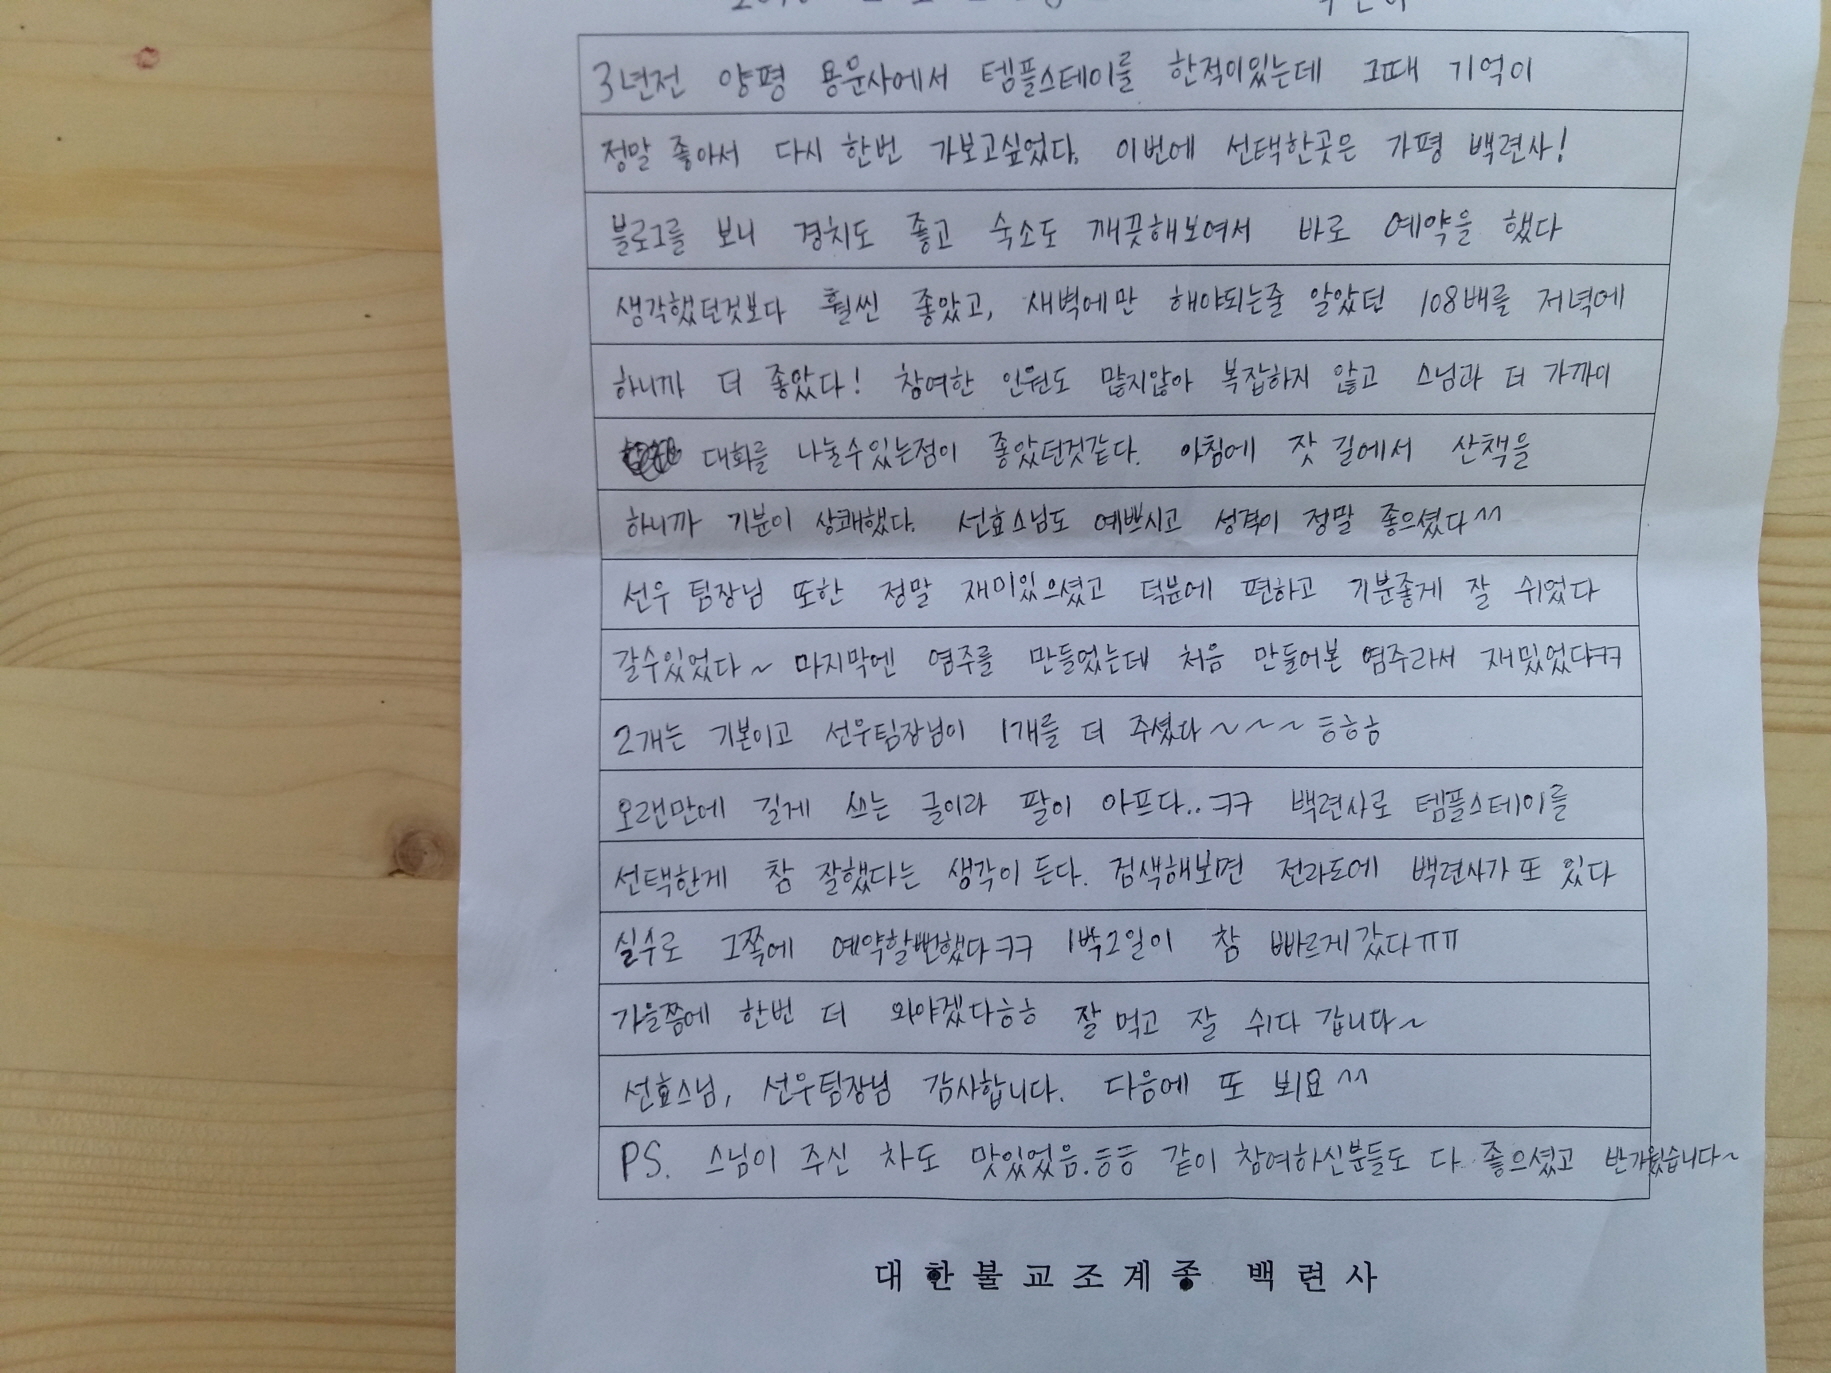 3년전 양평 용문사에서 템플스테이를 한적이있는데 그때 기억이
정말 좋아서 다시 한번 가보고싶었다. 이번에 선택한곳은 가평 백련사!
블로그를 보니 경치도 좋고 숙소도 깨끗해보여서 바로 예약을 했다
생각했던것보다 훨씬 좋았고, 새벽에만 해야되는줄 알았던 108배를 저녁에
하니까 더 좋았다! 참여한 인원도 많지않아 복잡하지 않고 스님과 더 가까이
대화를 나눌수있는점이 좋았던것같다. 아침에 잣 길에서 산책을
하니까 기분이 상쾌했다. 선효스님도 예쁘시고 성격이 정말 좋으셨다^^
선우 팀장님 또한 정말 재미있으셨고 덕분에 편하고 기분좋게 잘 쉬었다
갈수있었다~ 마지막엔 염주를 만들었는데 처음 만들어본 염주라서 재밌었다ㅋㅋ
2개는 기본이고 선우팀장님이 1개를 더 주셨다~~~ㅎㅎㅎ
오랜만에 길게 쓰는 글이라 팔이 아프다..ㅋㅋ 백련사로 템플스테이를
선택한게 참 잘했다는 생각이 든다. 검색해보면 전라도에 백련사가 또 있다
실수로 그쪽에 예약할뻔했다ㅋㅋ 1박2일이 참 빠르게갔다ㅠㅠ
가을쯤에 한번 더 와야겠다ㅎㅎ 잘 먹고 잘 쉬다 갑니다~
선효스님, 선우팀장님 감사합니다. 다음에 또 뵈요^^
PS. 스님이 주신 차도 맛있었음.ㅎㅎ 같이 참여하신분들도 다 좋으셨고 반가웠습니다~
대한불교조계종 백련사